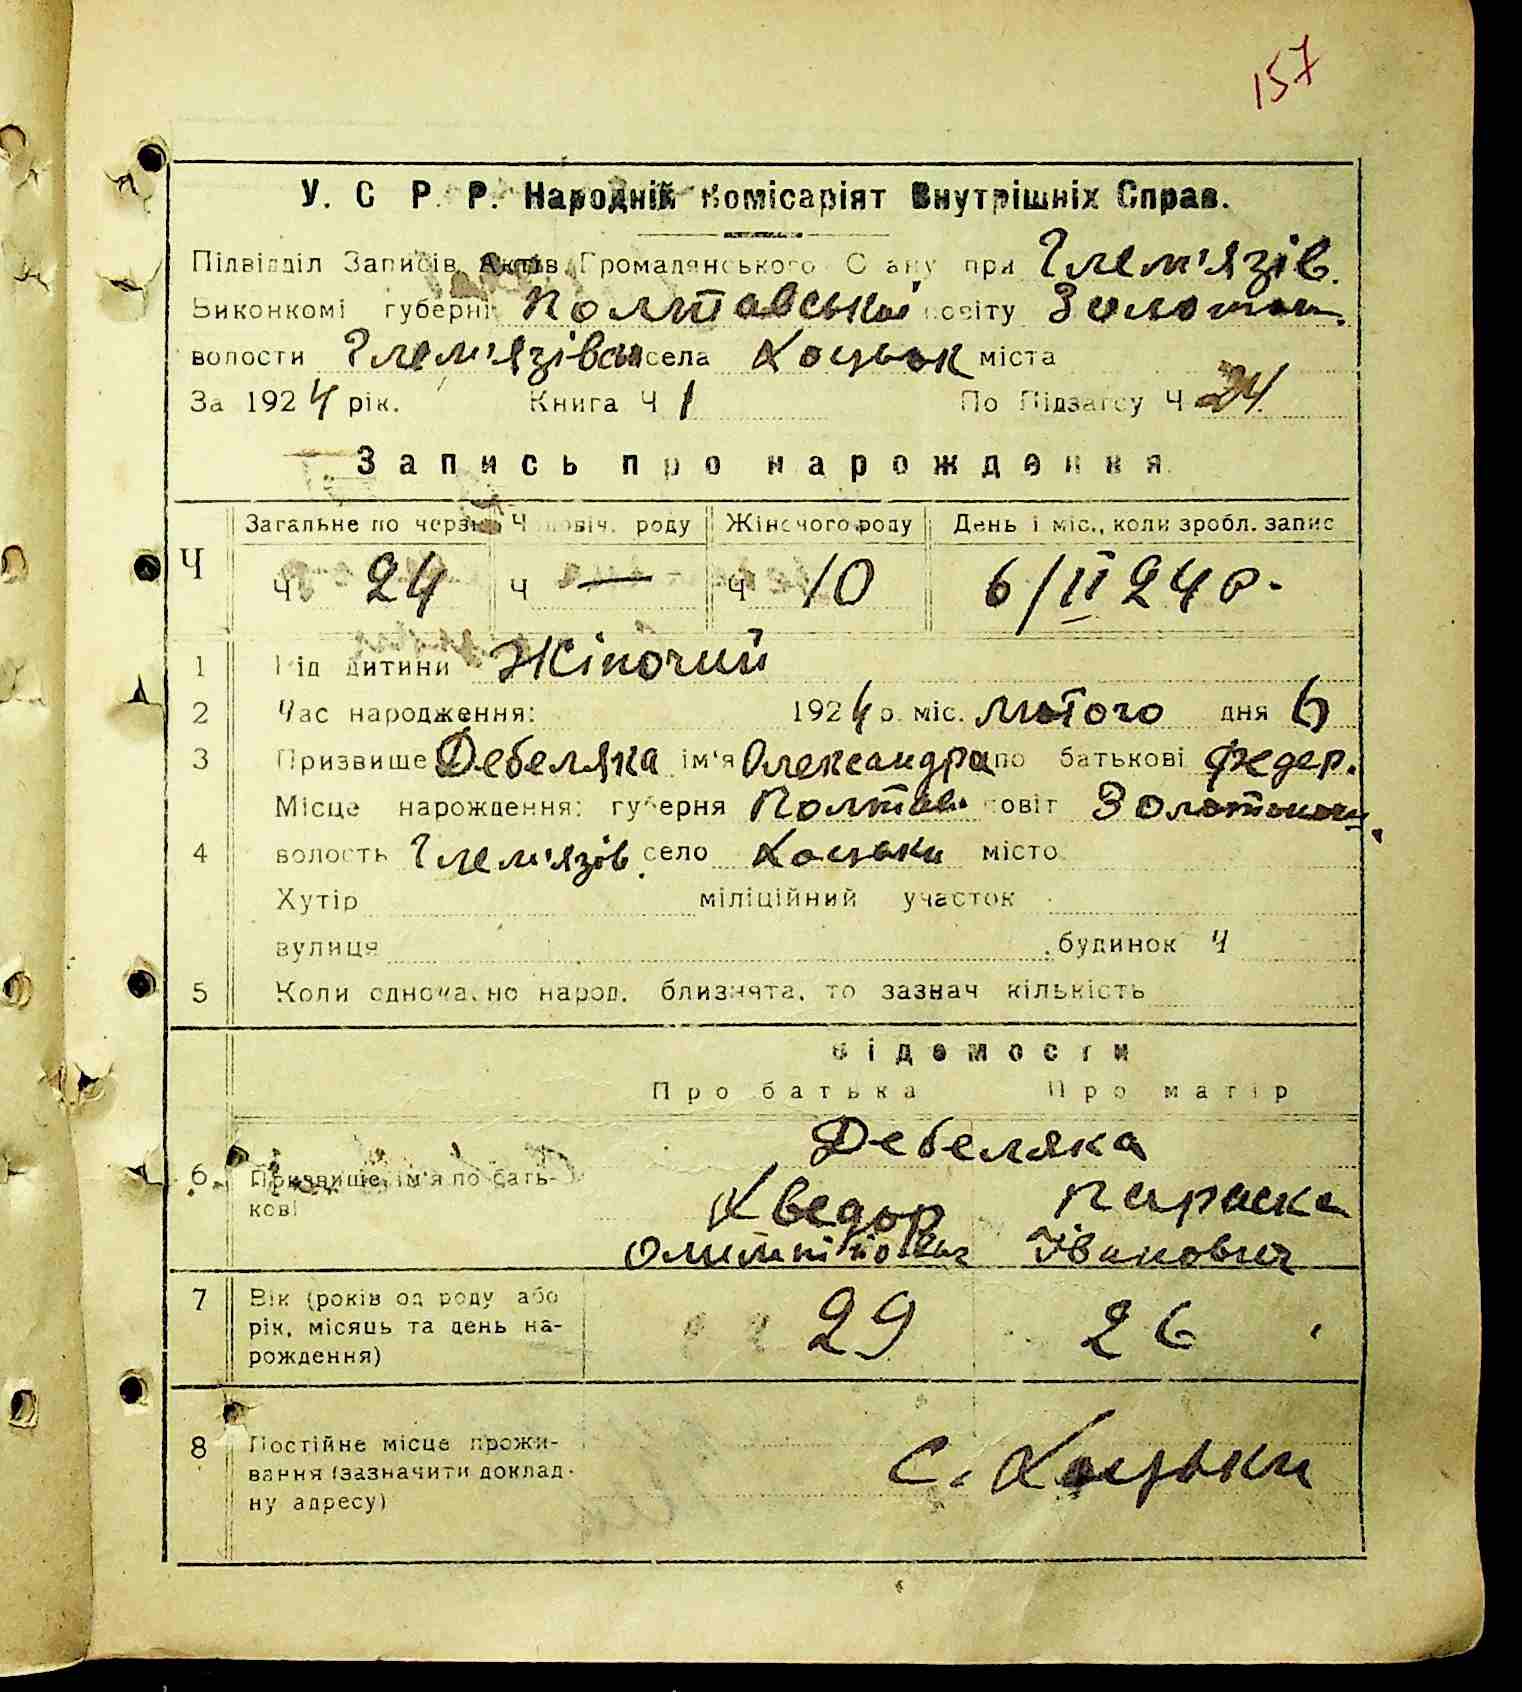 157
У. С. Р. Р. Народній Комісаріят Внутрішніх Справ.
Підвідділ Записів Актів Громадянського Стану при Глем'язів.
Виконкомі губерні Полтавської повіту Золотонош.
волости Глем'язівськ села Коцьок міста
За 1924 рік. Книга Ч 1 По Підзагсу Ч 24
Запись про нарождення
Загальне по черзі Чоловіч. роду Жіночого роду День і міс., коли зробл. запис
Ч Ч 24 Ч — Ч 10 6/II 24 р.
1 Рід дитини Жіночий
2 Час народження: 1924 р. міс. лютого дня 6
3 Призвище Дебеляка ім'я Олександра по батькові Федер.
Місце нарождення: губерня Полтав. повіт Золотонош.
4 волость Глем'язів. село Коцьки місто
Хутір міліційний участок
вулиця будинок Ч
5 Коли одночасно народ. близнята, то зазнач кількість
Відомости
Про батька Про матір
Дебеляка
6 Призвище, ім'я по бать-
кові
Хведор Параска
Олимпійович Івановна
7 Вік (років од роду або
рік, місяць та день на-
рождення)
29 26
8 Постійне місце прожи-
вання (зазначити доклад-
ну адресу)
с. Коцьки